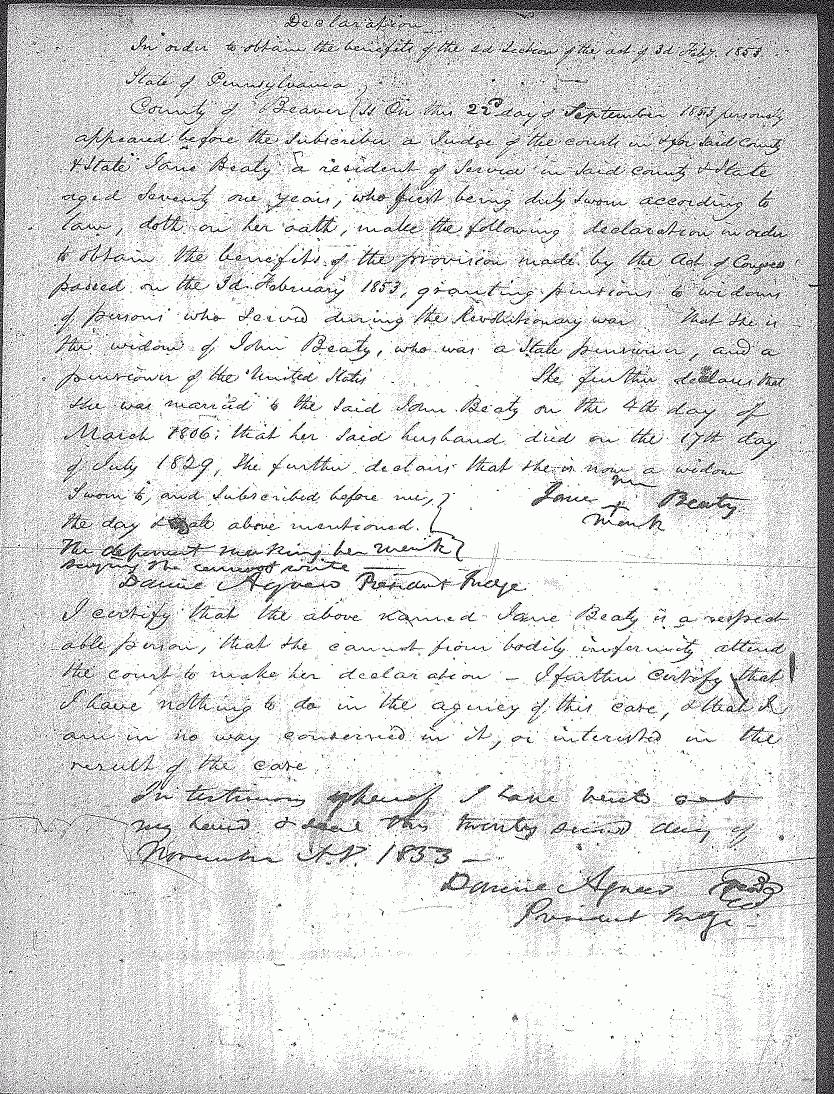 Declaration
In order to obtain the benefits of the 2d Section of the act of 3d Feby. 1853
State of Pennsylvania }
County of Beaver } ss On this 22d day of September 1853 personally
appeared before the Subscriber a Judge of the courts in & for Said County
& State Jane Beaty a resident of Service in Said county & State
aged Seventy one years, who first being duly Sworn according to
law, doth on her oath, make the following declaration in order
to obtain the benefits of the provision made by the Act of Congress
passed on the 3d February 1853, granting pensions to widows
of persons who Served during the Revolutionary war That She is
the widow of John Beaty, who was a State pensioner, and a
pensioner of the United States She further declares that
She was married to the Said John Beaty on the 4th day of
March 1806; that her Said husband died on the 17th day
of July 1829, She further declares that She is now a widow
Sworn to, and Subscribed before me, } Jane + Beaty
the day & above mentioned. } mark
the deponent making her mark }
saying she cannot write
Daniel Agnew President Judge
I certify that the above named Jane Beaty is a respect
able person, that she cannot from bodily infirmity attend
the court to make her declaration – I further certify that
I have nothing to do in the agency of this case, & that I
am in no way concerned in it, or interested in the
result of the case
In testimony whereof I have hereto set
my hand & seal this twenty second day of
November A.D. 1853 –
Daniel Agnew
President Judge